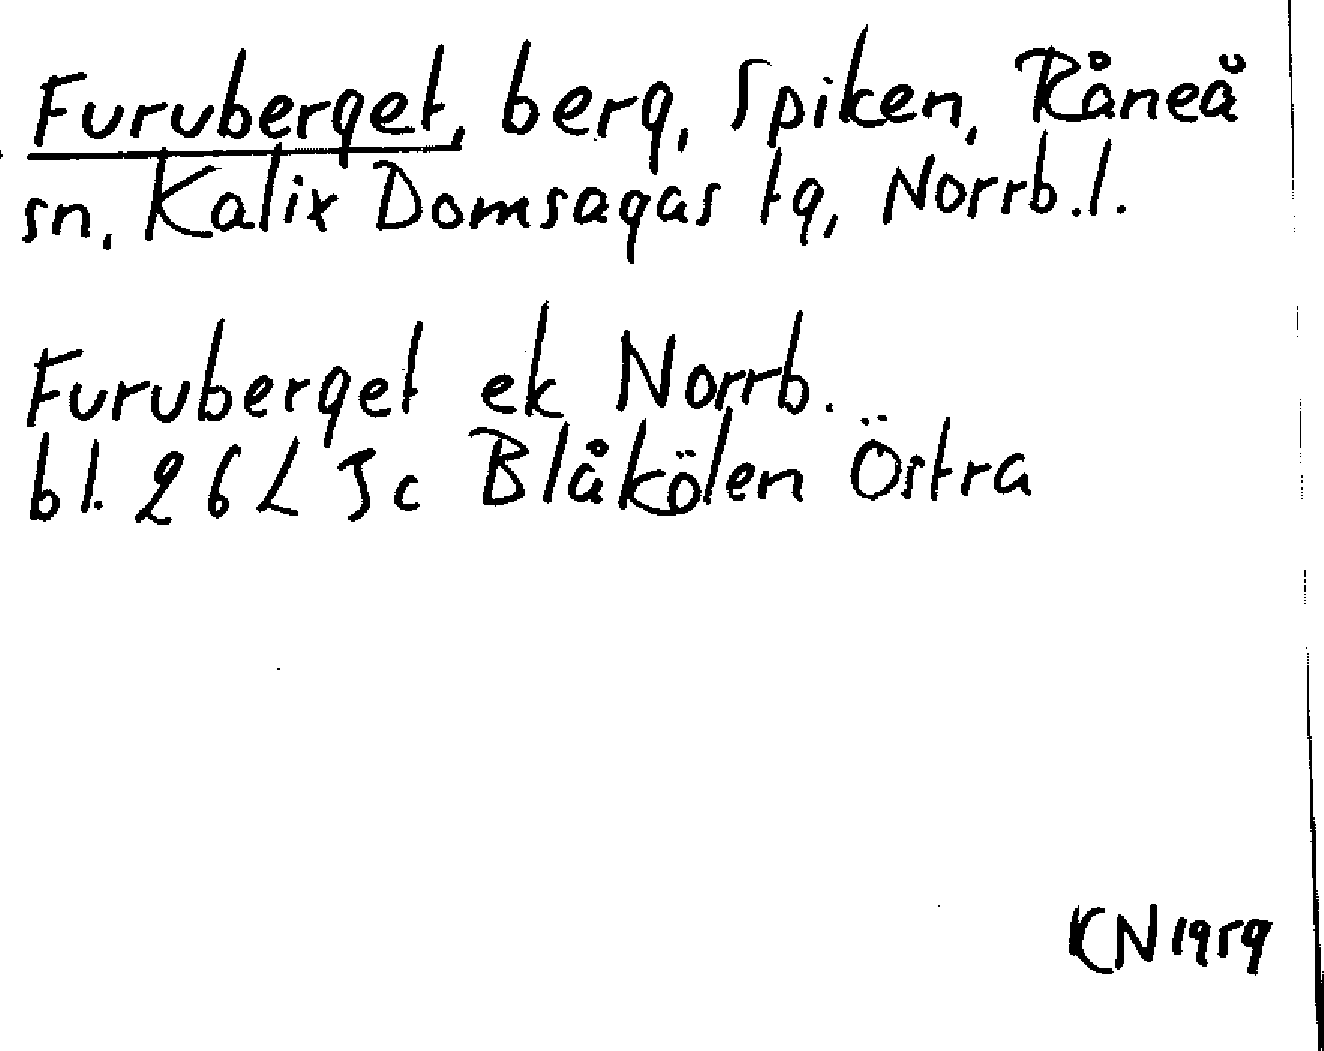 Furuberget, berg, Spiken, Råneå
sn, Kalix Domsagas tg, Norrb.l.
Furuberget ek Norrb.
bl. 26 L Jc Blåkölen Östra
KN 1959